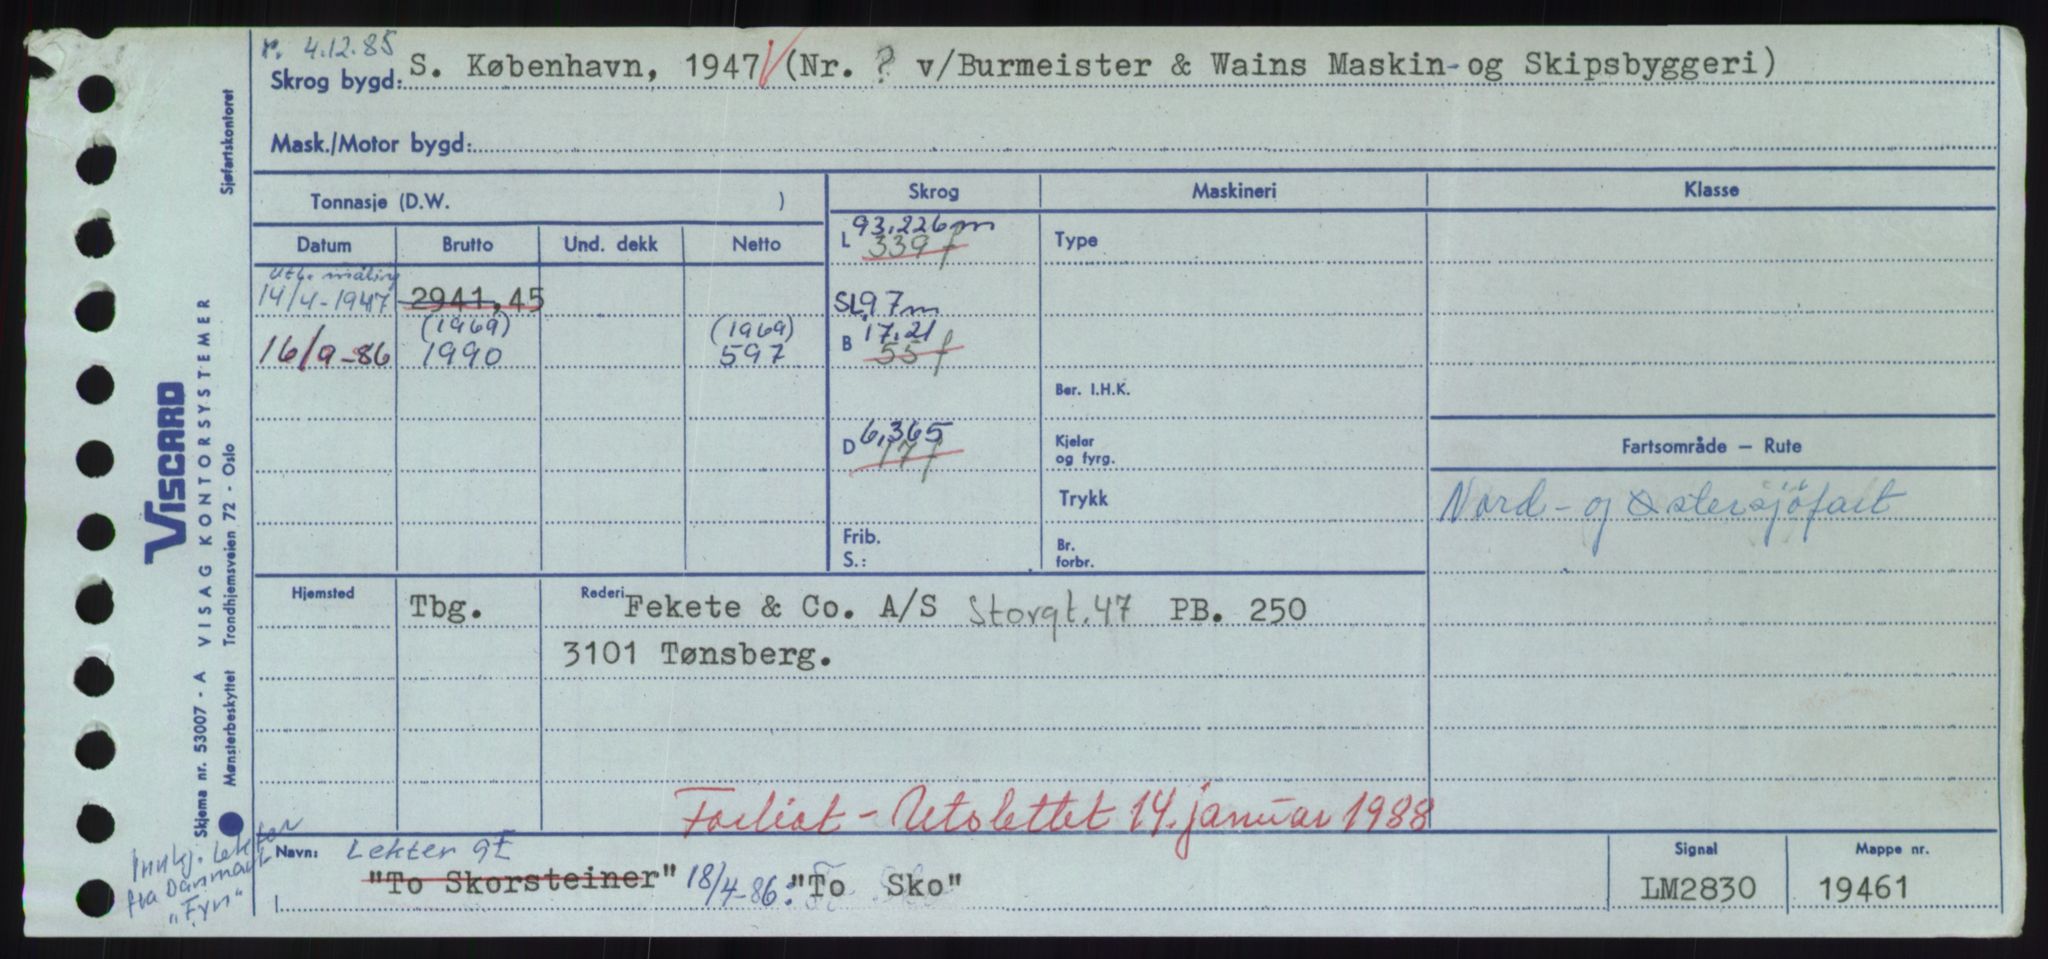 r. 4.12.85
Skrog bygd: S. København, 1947 (Nr. ? v/Burmeister & Wains Maskin- og Skipsbyggeri)
Mask./Motor bygd:
Tonnasje (D.W. )
Skrog
Maskineri
Klasse
Datum
Brutto
Und. dekk
Netto
L 93,226 m
339 f
Type
Utl. måling
14/4-1947 2941,45
SL 97 m
(1969)
(1969)
16/9-86 1990 597
B 17.21
55 f
Ber. I.H.K.
D 6,365
17 f
Kjelar
og fyrg.
Fartsområde — Rute
Trykk
Nord- og Østersjöfart
Frib.
S.:
Br.
forbr.
Hjemsted
Tbg.
Rederi Fekete & Co. A/S Storgt. 47 PB. 250
3101 Tønsberg.
Forliat - Utslettet 14. januar 1988
Navn: Lekter gt
"To Skorsteiner" 18/4-86: "To Sko"
Signal
LM2830
Mappe nr.
19461
Sjøfartskontoret
VISCARD
VISAG KONTORSYSTEMER
Skjema nr. 53007 - A
Mønsterbeskyttet Trondhjemsveien 72 - Oslo
Innkj. lekter
fra Danmark
"Fyn"